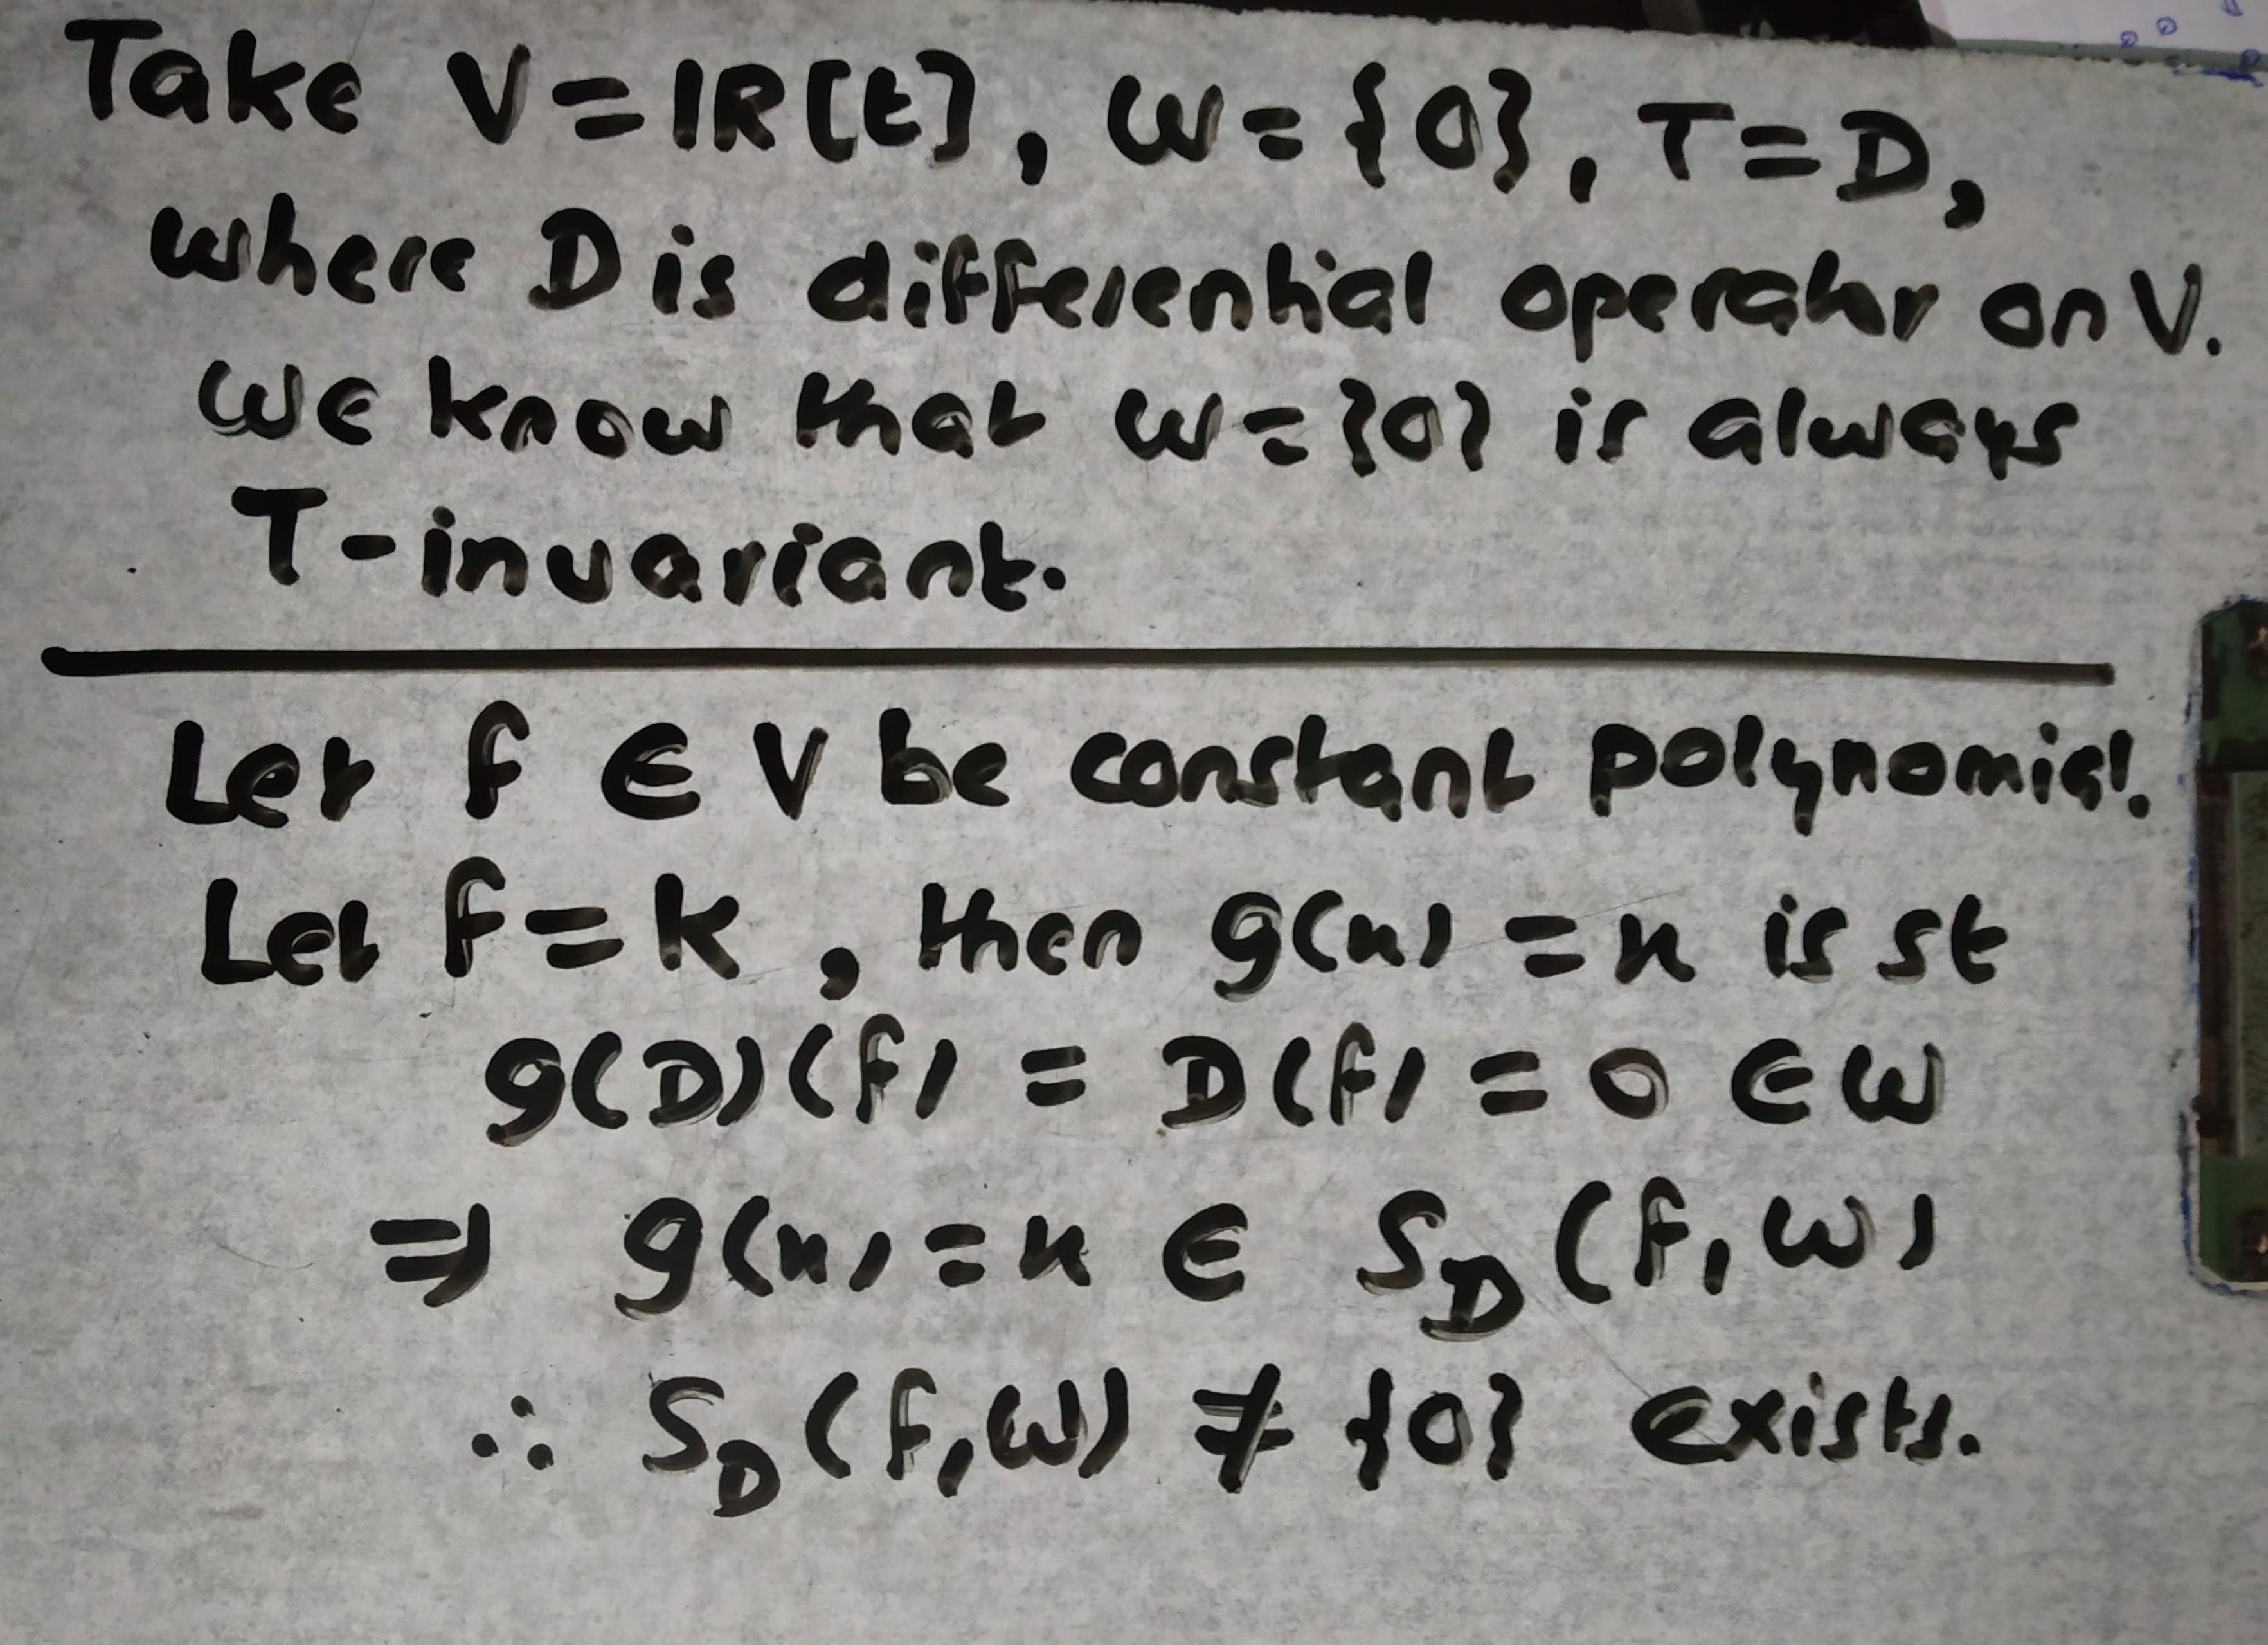 Take V = IR[t], W = {0}, T = D,
where D is differential operator on V.
We know that W = {0} is always
T-invariant.
Let f ∈ V be constant polynomial.
Let f = k, then g(x) = x is st
g(D)(f) = D(f) = 0 ∈ W
⇒ g(x) = x ∈ S_D(f, W)
∴ S_D(f, W) ≠ {0} exists.